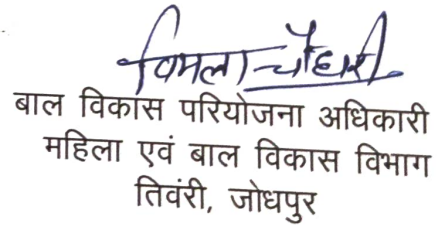 विमला चौधरी
बाल विकास परियोजना अधिकारी
महिला एवं बाल विकास विभाग
तिवंरी, जोधपुर